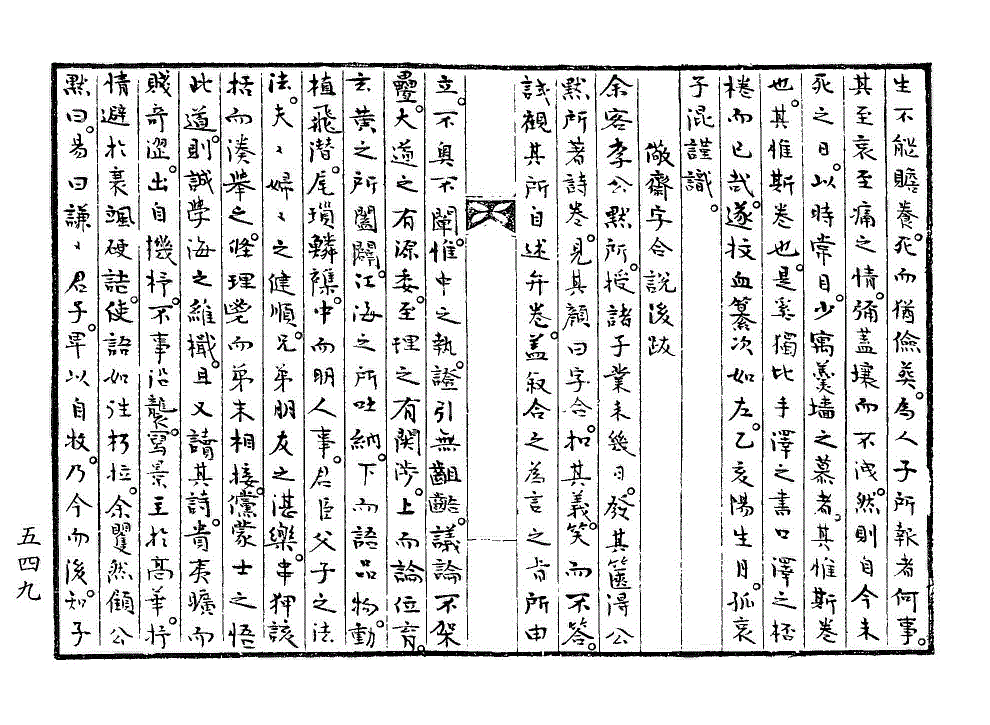 生不能贍養。死而猶儉葬。爲人子所報者何事。
其至哀至痛之情。彌蓋壤而不洩。然則自今未
死之日。以時常目。少寓羹墻之慕者。其惟斯卷
也。其惟斯卷也。是奚獨比手澤之書口澤之桮
棬而已哉。遂抆血纂次如左。乙亥陽生月。孤哀
子混謹識。
敞齋字合說後跋
余客李公默所。授諸子業未幾日。發其篋得公
默所著詩卷。見其顏曰字合。扣其義。笑而不答。
試觀其所自述弁卷。盖敍合之爲言之旨所由
立。不奧不闡。惟中之執。證引無齟齬。議論不架
疊。大道之有源委。至理之有關涉。上而論位育。
玄黃之所闔闢。江海之所吐納。下而語品物。動
植飛潛。尾瑣鱗襍。中而明人事。君臣父子之法
法。夫〻婦〻之健順。兄弟朋友之湛樂。串狎該
括而湊擧之。條理甍而弟末相接。儻蒙士之悟
此道。則誠學海之維檝。且又讀其詩。貴夷曠而
賤奇澀。出自機杼。不事沿襲。寫景主於高華。抒
情避於衰颯。硬詰使語如注朽拉。余瞿然顧公
默曰。易曰謙〻君子。卑以自牧。乃今而後。知子
五四九